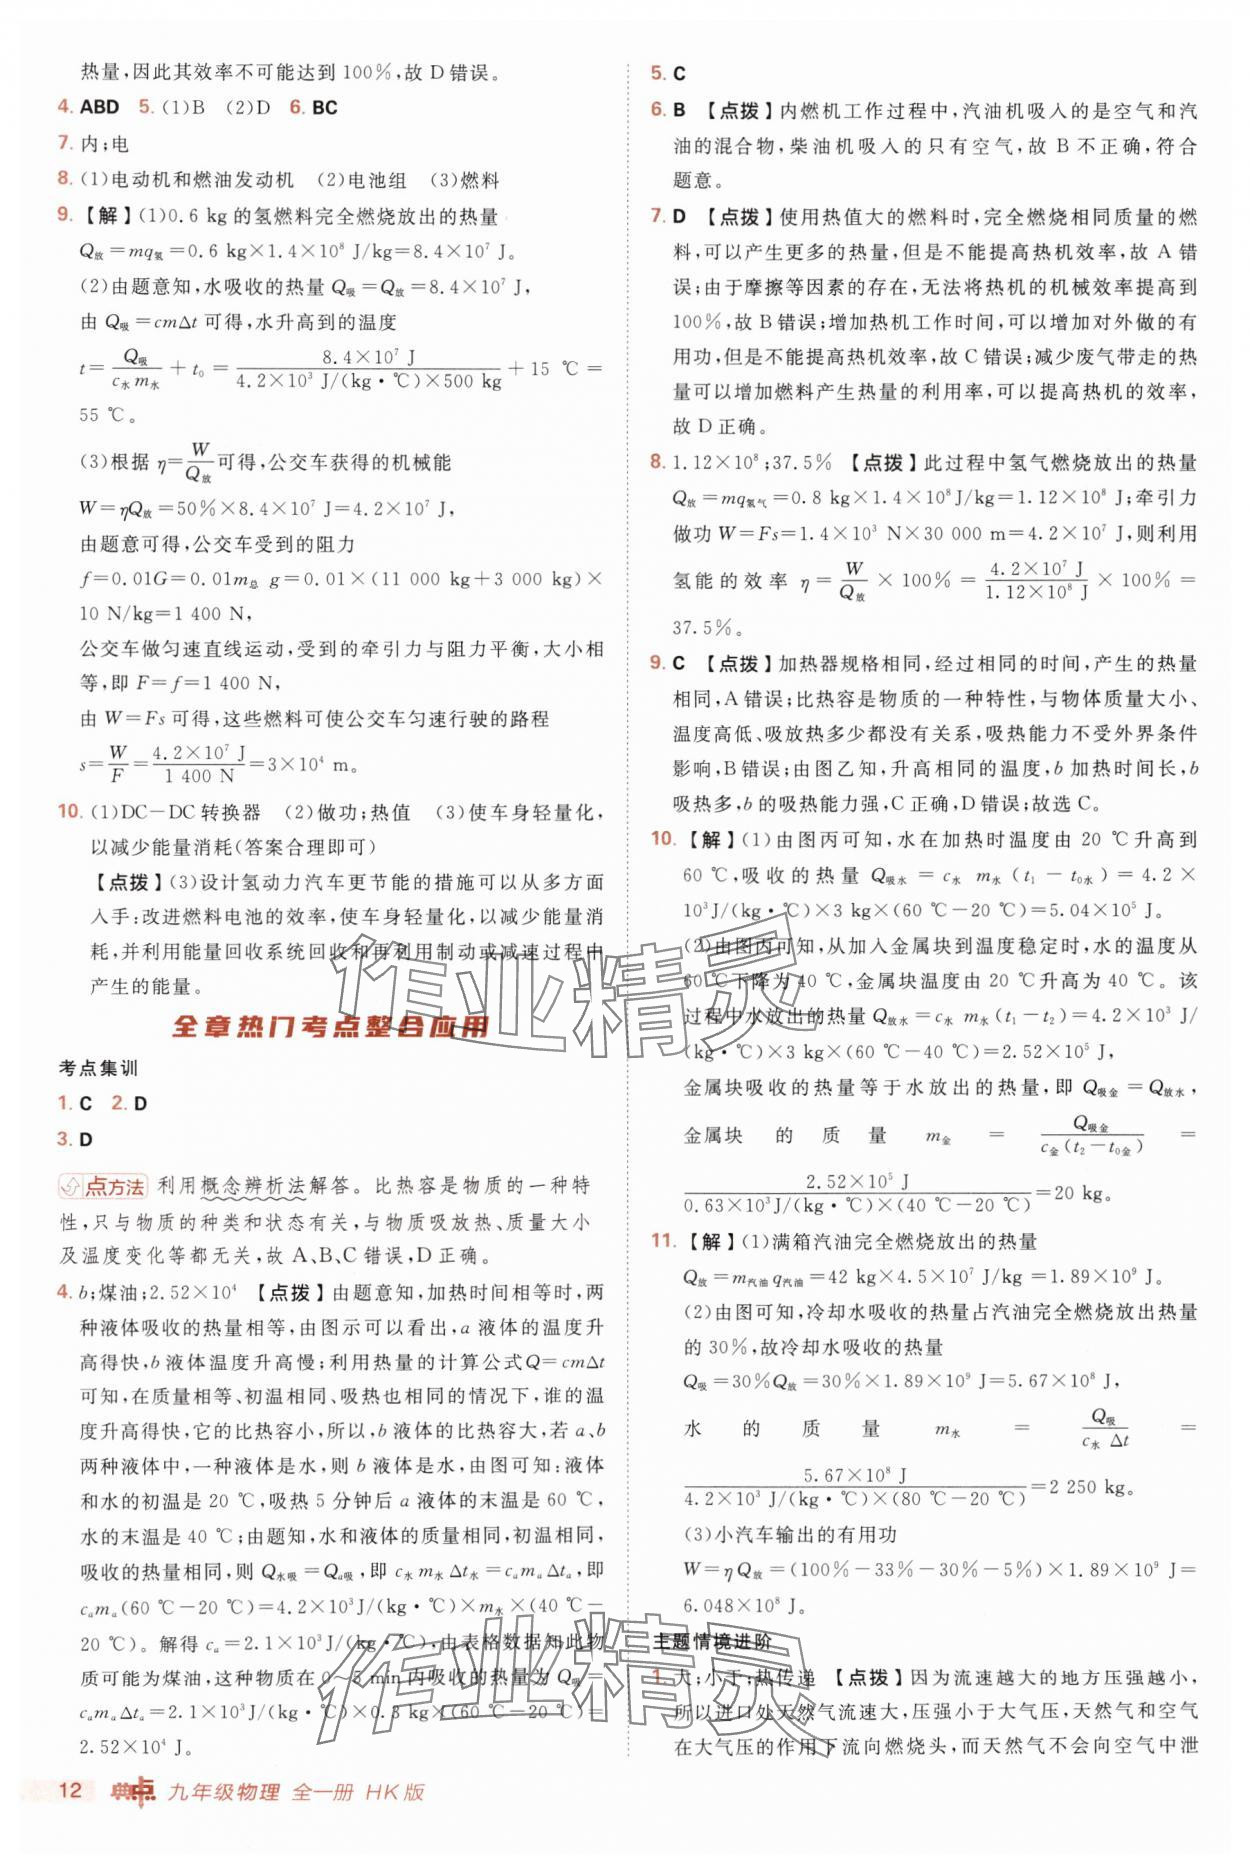 热量,因此其效率不可能达到 100%,故 D 错误。
4. ABD 5. (1)B (2)D 6. BC
7. 内;电
8. (1)电动机和燃油发动机 (2)电池组 (3)燃料
9. 【解】(1)0.6 kg 的氢燃料完全燃烧放出的热量
Q放=mq氢=0.6 kg×1.4×10⁸ J/kg=8.4×10⁷ J。
(2)由题意知,水吸收的热量 Q吸=Q放=8.4×10⁷ J,
由 Q吸=cmΔt 可得,水升高到的温度
t=Q吸/(c水 m水)+t₀=8.4×10⁷ J/(4.2×10³ J/(kg·℃)×500 kg)+15 ℃=
55 ℃。
(3)根据 η=W/Q放 可得,公交车获得的机械能
W=ηQ放=50%×8.4×10⁷ J=4.2×10⁷ J,
由题意可得,公交车受到的阻力
f=0.01G=0.01m总 g=0.01×(11 000 kg+3 000 kg)×
10 N/kg=1 400 N,
公交车做匀速直线运动,受到的牵引力与阻力平衡,大小相
等,即 F=f=1 400 N,
由 W=Fs 可得,这些燃料可使公交车匀速行驶的路程
s=W/F=4.2×10⁷ J/1 400 N=3×10⁴ m。
10. (1)DC-DC 转换器 (2)做功;热值 (3)使车身轻量化,
以减少能量消耗(答案合理即可)
【点拨】(3)设计氢动力汽车更节能的措施可以从多方面
入手:改进燃料电池的效率,使车身轻量化,以减少能量消
耗,并利用能量回收系统回收和再利用制动或减速过程中
产生的能量。
全章热门考点整合应用
考点集训
1. C 2. D
3. D
点方法 利用概念辨析法解答。比热容是物质的一种特
性,只与物质的种类和状态有关,与物质吸放热、质量大小
及温度变化等都无关,故 A、B、C 错误,D 正确。
4. b;煤油;2.52×10⁴ 【点拨】由题意知,加热时间相等时,两
种液体吸收的热量相等,由图示可以看出,a 液体的温度升
高得快,b 液体温度升高慢;利用热量的计算公式Q=cmΔt
可知,在质量相等、初温相同、吸热也相同的情况下,谁的温
度升高得快,它的比热容小,所以,b 液体的比热容大,若 a、b
两种液体中,一种液体是水,则 b 液体是水,由图可知:液体
和水的初温是 20 ℃,吸热 5 分钟后 a 液体的末温是 60 ℃,
水的末温是 40 ℃;由题知,水和液体的质量相同,初温相同,
吸收的热量相同,则 Q水吸=Qa吸,即 c水 m水 Δt水=ca ma Δta,即
ca ma(60 ℃-20 ℃)=4.2×10³J/(kg·℃)×m水×(40 ℃-
20 ℃)。解得 ca=2.1×10³J/(kg·℃),由表格数据知此物
质可能为煤油,这种物质在 0~5 min内吸收的热量为 Q吸=
ca ma Δta=2.1×10³J/(kg·℃)×0.3 kg×(60 ℃-20 ℃)=
2.52×10⁴ J。
5. C
6. B 【点拨】内燃机工作过程中,汽油机吸入的是空气和汽
油的混合物,柴油机吸入的只有空气,故 B 不正确,符合
题意。
7. D 【点拨】使用热值大的燃料时,完全燃烧相同质量的燃
料,可以产生更多的热量,但是不能提高热机效率,故 A 错
误;由于摩擦等因素的存在,无法将热机的机械效率提高到
100%,故 B错误;增加热机工作时间,可以增加对外做的有
用功,但是不能提高热机效率,故 C错误;减少废气带走的热
量可以增加燃料产生热量的利用率,可以提高热机的效率,
故 D 正确。
8. 1.12×10⁸;37.5% 【点拨】此过程中氢气燃烧放出的热量
Q放=mq氢气=0.8 kg×1.4×10⁸J/kg=1.12×10⁸ J;牵引力
做功 W=Fs=1.4×10³ N×30 000 m=4.2×10⁷ J,则利用
氢能的效率 η=W/Q放×100%=4.2×10⁷ J/1.12×10⁸ J×100%=
37.5%。
9. C 【点拨】加热器规格相同,经过相同的时间,产生的热量
相同,A错误;比热容是物质的一种特性,与物体质量大小、
温度高低、吸放热多少都没有关系,吸热能力不受外界条件
影响,B错误;由图乙知,升高相同的温度,b 加热时间长,b
吸热多,b 的吸热能力强,C正确,D错误;故选 C。
10. 【解】(1)由图丙可知,水在加热时温度由 20 ℃升高到
60 ℃,吸收的热量 Q吸水=c水 m水(t₁-t₀水)=4.2×
10³J/(kg·℃)×3 kg×(60 ℃-20 ℃)=5.04×10⁵ J。
(2)由图丙可知,从加入金属块到温度稳定时,水的温度从
60 ℃下降为 40 ℃,金属块温度由 20 ℃升高为 40 ℃。该
过程中水放出的热量 Q放水=c水 m水(t₁-t₂)=4.2×10³ J/
(kg·℃)×3 kg×(60 ℃-40 ℃)=2.52×10⁵ J,
金属块吸收的热量等于水放出的热量,即 Q吸金=Q放水,
金属块的质量 m金=Q吸金/(c金(t₂-t₀金))=
2.52×10⁵ J/(0.63×10³J/(kg·℃)×(40 ℃-20 ℃))=20 kg。
11. 【解】(1)满箱汽油完全燃烧放出的热量
Q放=m汽油 q汽油=42 kg×4.5×10⁷ J/kg=1.89×10⁹ J。
(2)由图可知,冷却水吸收的热量占汽油完全燃烧放出热量
的 30%,故冷却水吸收的热量
Q吸=30%Q放=30%×1.89×10⁹ J=5.67×10⁸ J,
水的质量 m水=Q吸/(c水 Δt)=
5.67×10⁸ J/(4.2×10³ J/(kg·℃)×(80 ℃-20 ℃))=2 250 kg。
(3)小汽车输出的有用功
W=ηQ放=(100%-33%-30%-5%)×1.89×10⁹ J=
6.048×10⁸ J。
主题情境进阶
1. 大;小于;热传递 【点拨】因为流速越大的地方压强越小,
所以进口处天然气流速大,压强小于大气压,天然气和空气
在大气压的作用下流向燃烧头,而天然气不会向空气中泄
12 典中点 九年级物理 全一册 HK版
作业精灵
作业精灵